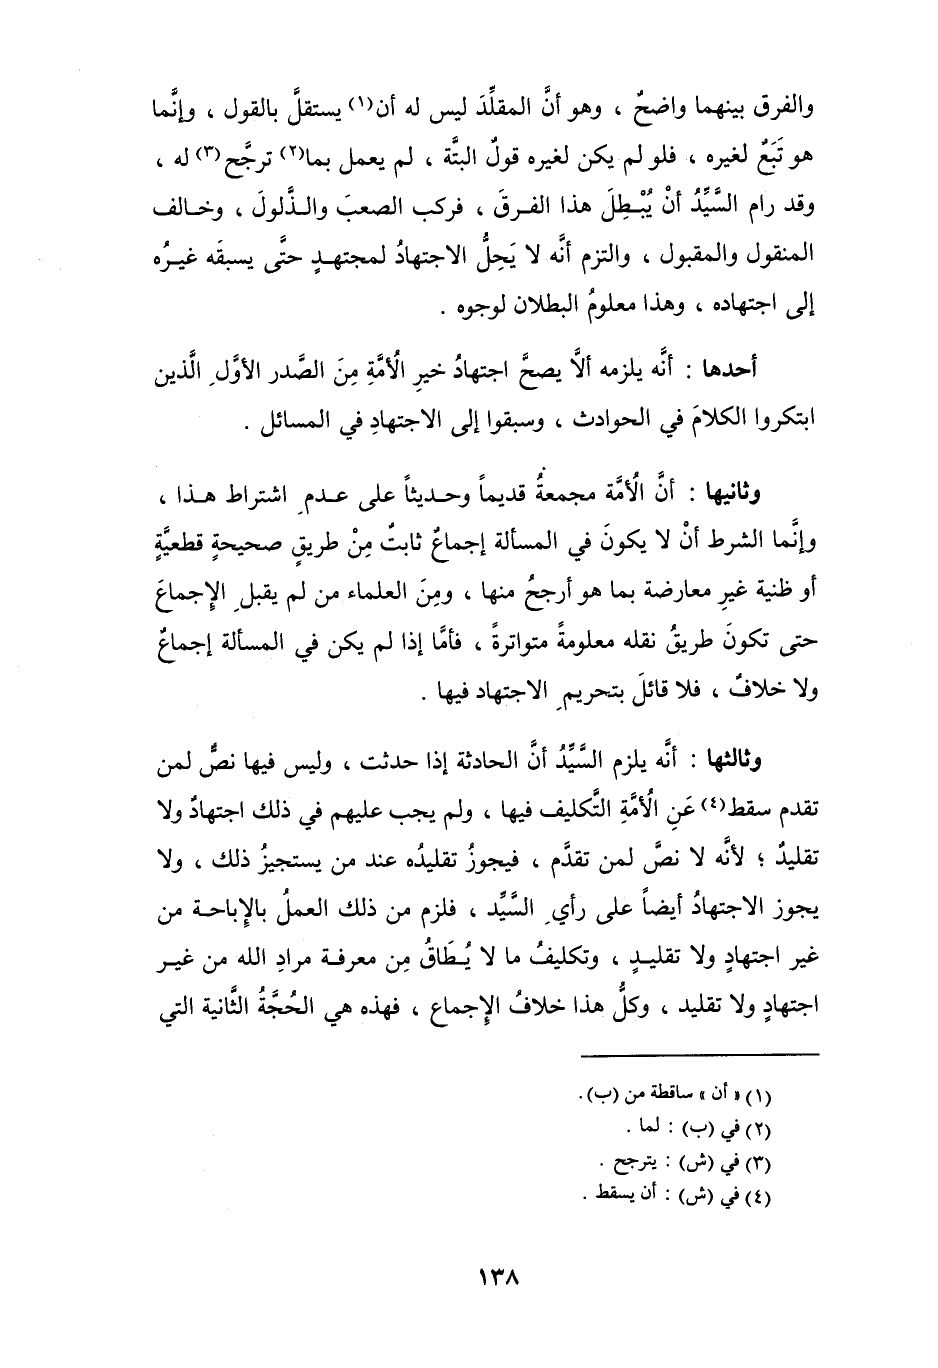 والفرق بينهما واضحٌ ، وهو أنَّ المقلِّدَ ليس له أن(١) يستقلَّ بالقول ، وإنَّما
هو تَبَعٌ لغيره ، فلو لم يكن لغيره قولٌ البتَّة ، لم يعمل بما(٢) ترجَّح(٣) له ،
وقد رام السَّيِّدُ أنْ يُبْطِلَ هذا الفرقَ ، فركب الصعبَ والذَّلولَ ، وخالف
المنقول والمقبول ، والتزم أنَّه لا يَحِلُّ الاجتهادُ لمجتهدٍ حتَّى يسبقَه غيرُه
إلى اجتهاده ، وهذا معلومُ البطلان لوجوه .
أحدها : أنَّه يلزمه ألاَّ يصحَّ اجتهادُ خيرِ الأُمَّةِ مِنَ الصَّدر الأوَّلِ الَّذين
ابتكروا الكلامَ في الحوادث ، وسبقوا إلى الاجتهادِ في المسائل .
وثانيها : أنَّ الأُمَّة مجمعةُ قديماً وحديثاً على عدمِ اشتراط هذا ،
وإنَّما الشرط أنْ لا يكونَ في المسألة إجماعٌ ثابتٌ مِنْ طريقٍ صحيحةٍ قطعيَّةٍ
أو ظنية غيرِ معارضة بما هو أرجحُ منها ، ومِنَ العلماء من لم يقبلِ الإجماعَ
حتى تكونَ طريقُ نقله معلومةً متواترةً ، فأمَّا إذا لم يكن في المسألة إجماعٌ
ولا خلافٌ ، فلا قائلَ بتحريمِ الاجتهاد فيها .
وثالثها : أنَّه يلزم السَّيِّدُ أنَّ الحادثة إذا حدثت ، وليس فيها نصٌّ لمن
تقدم سقط(٤) عَنِ الأُمَّةِ التَّكليف فيها ، ولم يجب عليهم في ذلك اجتهادٌ ولا
تقليدٌ ؛ لأنَّه لا نصَّ لمن تقدَّم ، فيجوزُ تقليدُه عند من يستجيزُ ذلك ، ولا
يجوز الاجتهادُ أيضاً على رأيِ السَّيِّد ، فلزم من ذلك العملُ بالإباحة من
غير اجتهادٍ ولا تقليدٍ ، وتكليفُ ما لا يُطَاقُ مِن معرفة مرادِ الله من غير
اجتهادٍ ولا تقليد ، وكلُّ هذا خلافُ الإجماع ، فهذه هي الحُجَّةُ الثَّانية التي
(١) « أن » ساقطة من (ب).
(٢) في (ب) : لما .
(٣) في (ش) : يترجح .
(٤) في (ش) : أن يسقط .
١٣٨